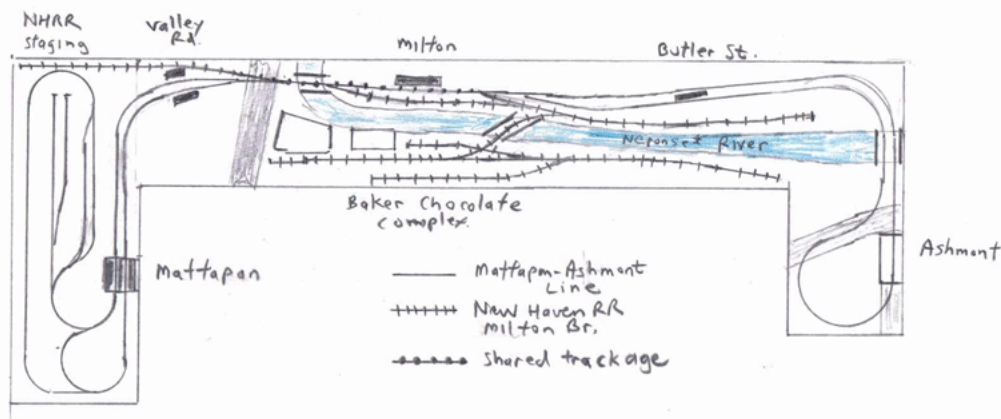 NHRR
staging
Valley
Rd.
Milton
Butler St.
Neponset River
Baker Chocolate
Complex.
Mattapan
Ashmont
Mattapan-Ashmont
Line
New Haven RR
Milton Br.
Shared trackage